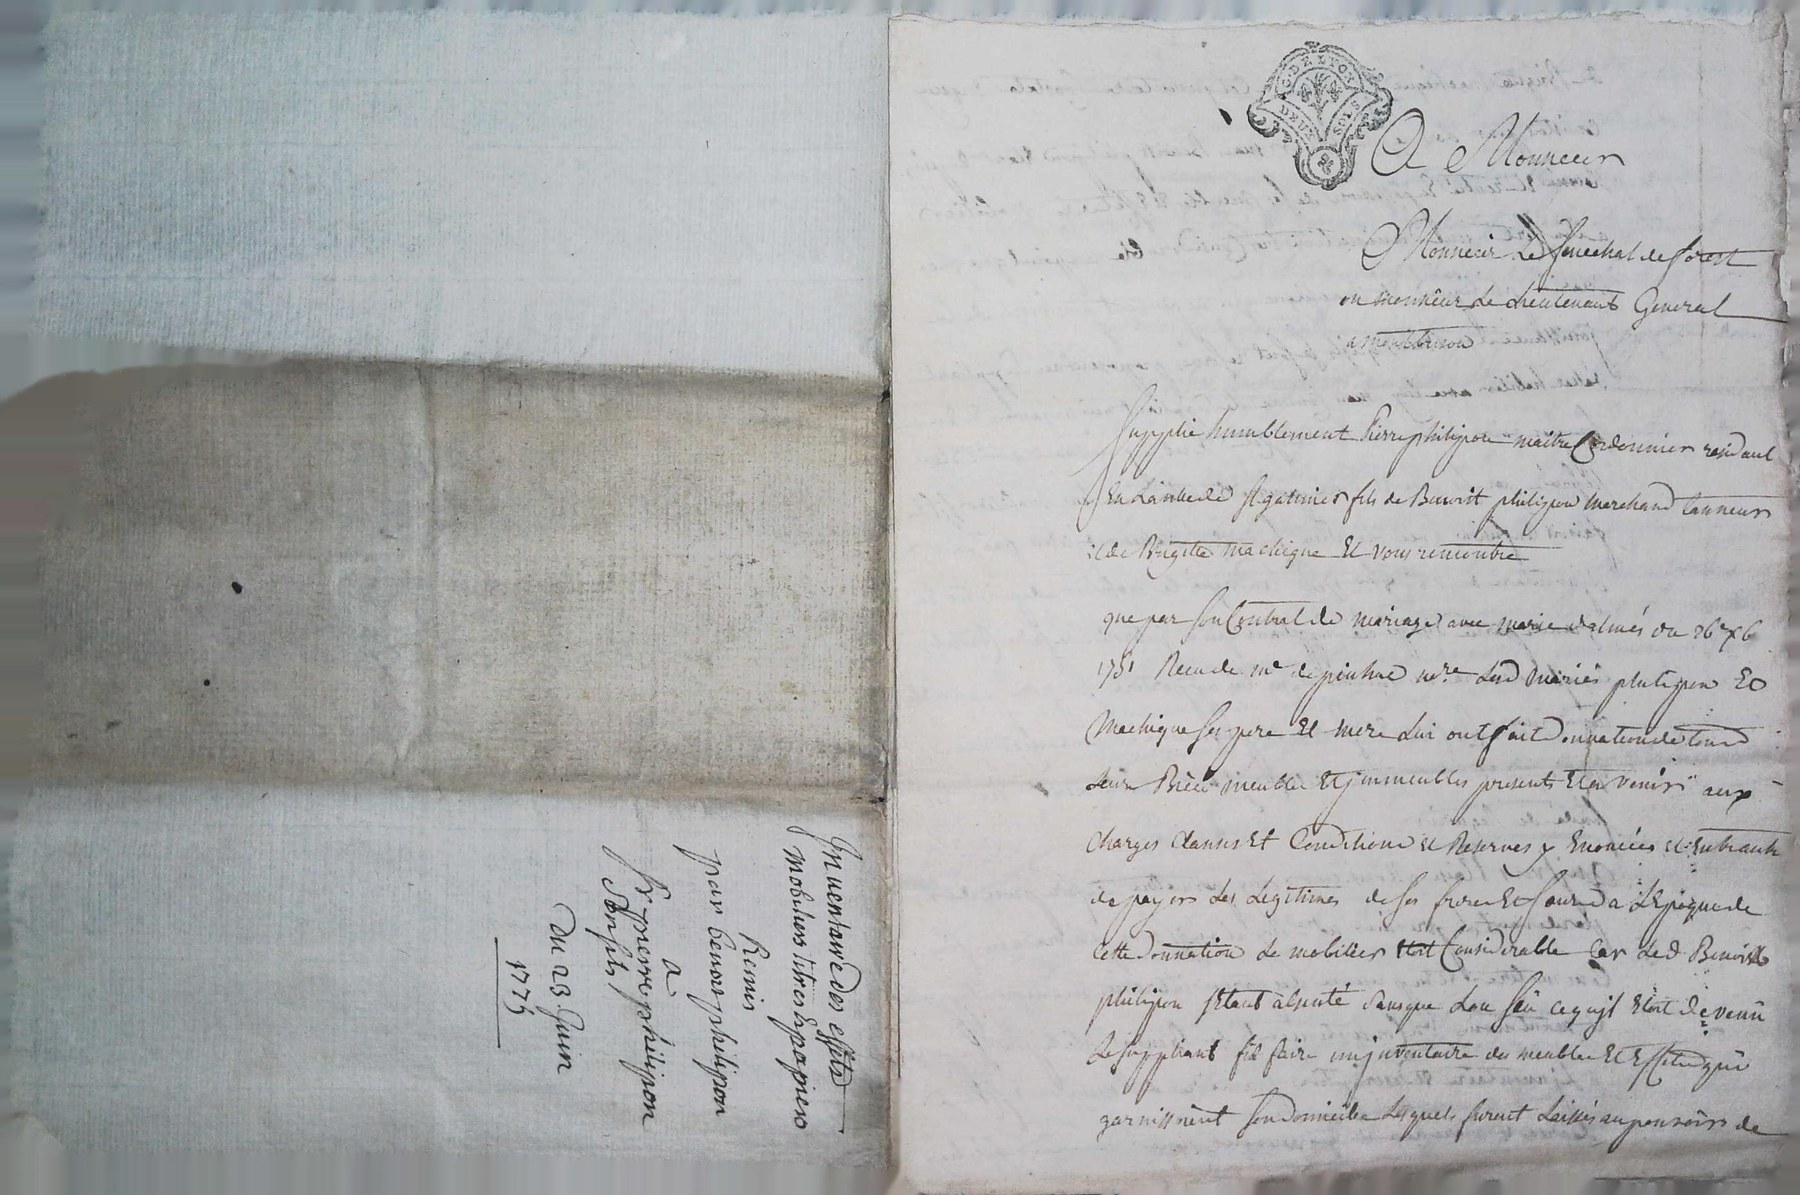 Inventaire des effets
mobiliers titres & papiers
Remis
par benoit philipon
a
Sr pierre philipon
son fils
du 23 Juin
1775
G. DE LYON
DEUX SOLS
A Monsieur
Monsieur Le senechal de forest
ou monsieur Le Lieutenant General
a montbrison
Supplie humblement Pierre philipon maitre Cordonnier residant
En La ville de st galmier fils de Benoist philipon marchand tanneur
et de Brigitte machique Et vous remontre
que par son Contrat de mariage avec marie dalmés du
1751 Recu de me de nre. Led mariés philipon Et
Machique ses pere Et mere Lui ont fait donnation de tous
Leurs Biens meubles Et jmmeubles presents Et a venir aux
Charges Clauses Et Conditions Et Reserves y Enoncées Et
de payer Les Legitimes de ses freres Et soeurs a L'Epoque de
Cette donnation Le mobilier Etoit Considerable Car Led. Benoist
philipon s'Etant absenté sans que Lon seu ce qu'jl Etoit devenu
Le suppliant fit faire un jnventaire des meubles Et Effets qui
garnissoient son domicile Lesquels furent Laissés au pouvoir de